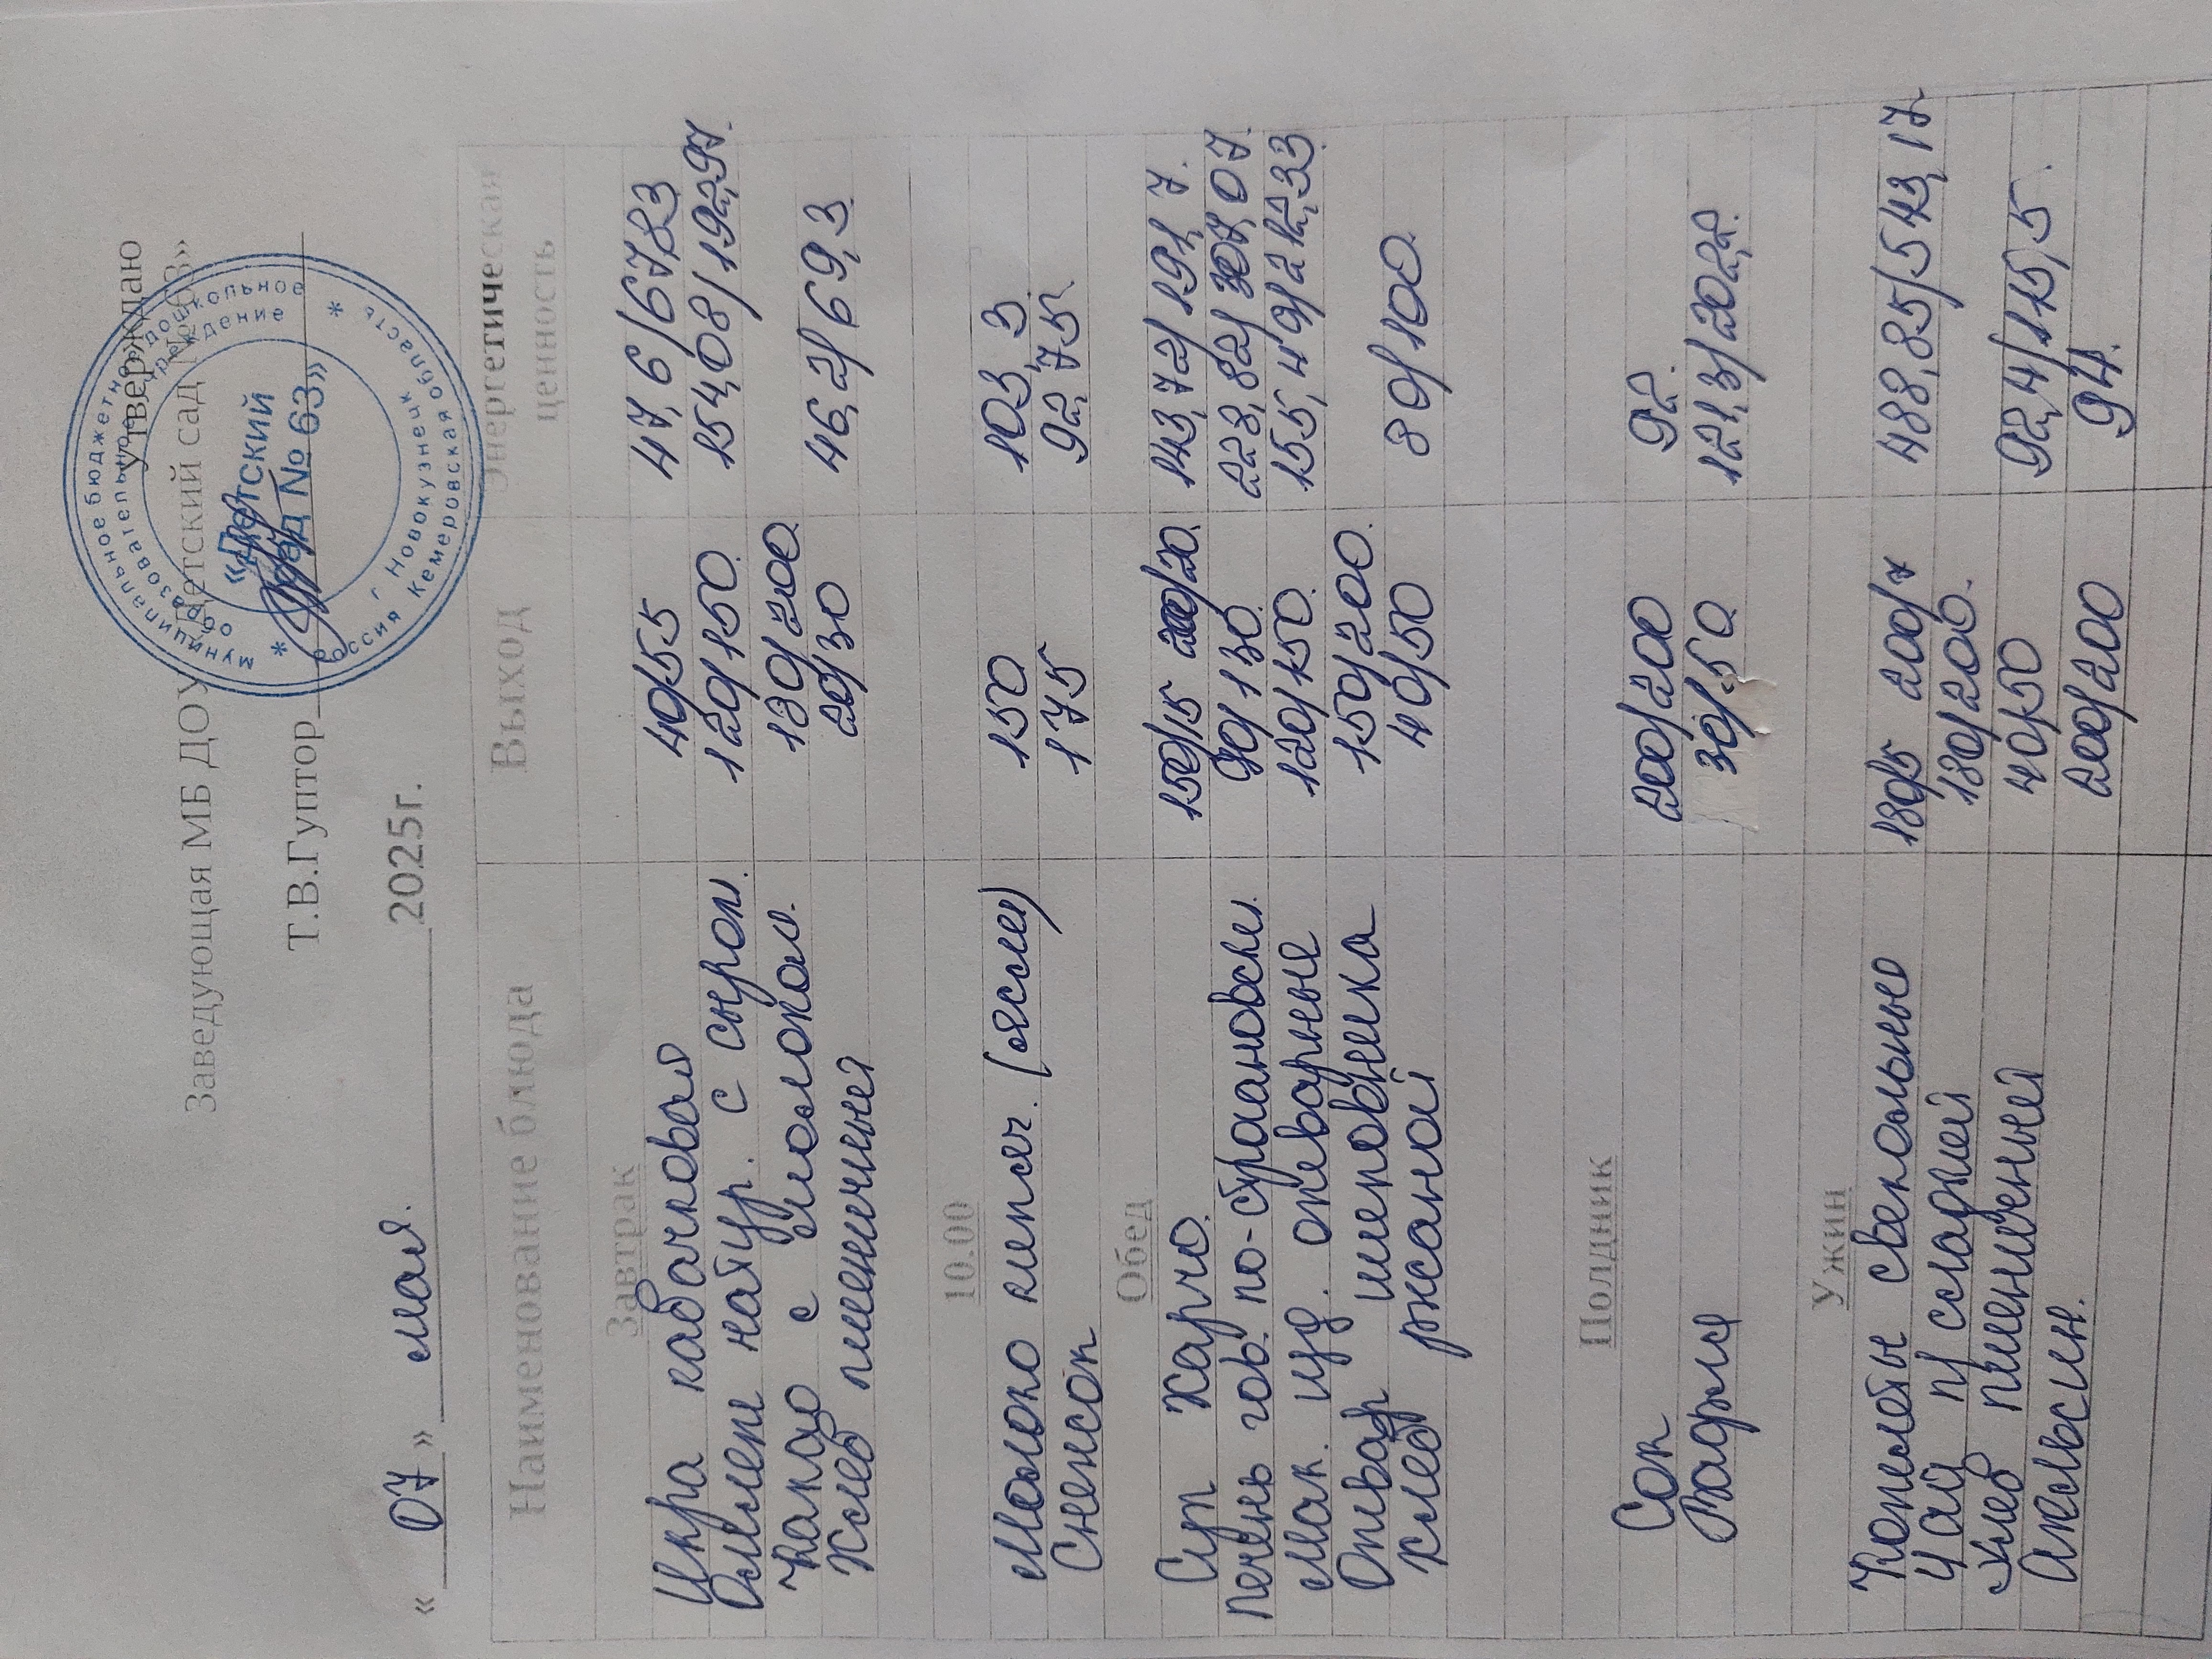 утверждаю
Заведующая МБ ДОУ «Детский сад №63»
Т.В.Гуптор
муниципальное бюджетное дошкольное
образовательное учреждение
«Детский
сад № 63»
г. Новокузнецк
Россия Кемеровская область
« 07 » мая. 2025г.
Наименование блюда Выход Энергетическая ценность
Завтрак
Икра кабачковая 40/55 47,6/67,83
Омлет натур. с сыром. 120/150. 154,08/192,97.
Какао с молоком. 180/200.
Хлеб пшеничный 20/30 46,2/69,3.
10.00
Молоко кипяч. (ясли) 150 103,3
Снежок 175 92,75.
Обед
Суп Харчо. 150/15 200/20. 143,72/191,7.
Печень гов. по-строгановски. 90/130. 228,82/307,07.
Мак. изд. отварные 120/150. 155,49/212,33
Отвар шиповника 150/200.
Хлеб ржаной 40/50 80/100.
Полдник
Сок 200/200 92.
Вафли 30/50. 121,3/202,2.
Ужин
Котлеты свекольные 180/5 200/7 488,85/543,17.
Чай п/сладкий 180/200.
Хлеб пшеничный 40/50 92,4/115,5.
Апельсин. 200/200 94.